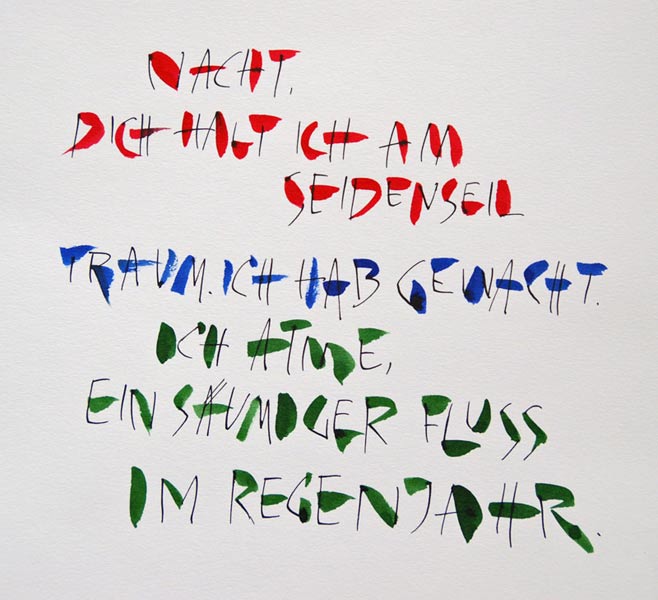 NACHT,
DICH HALT ICH AM
SEIDENSEIL
TRAUM. ICH HAB GEWACHT.
ICH ATME,
EIN SÄUMIGER FLUSS
IM REGENJAHR.